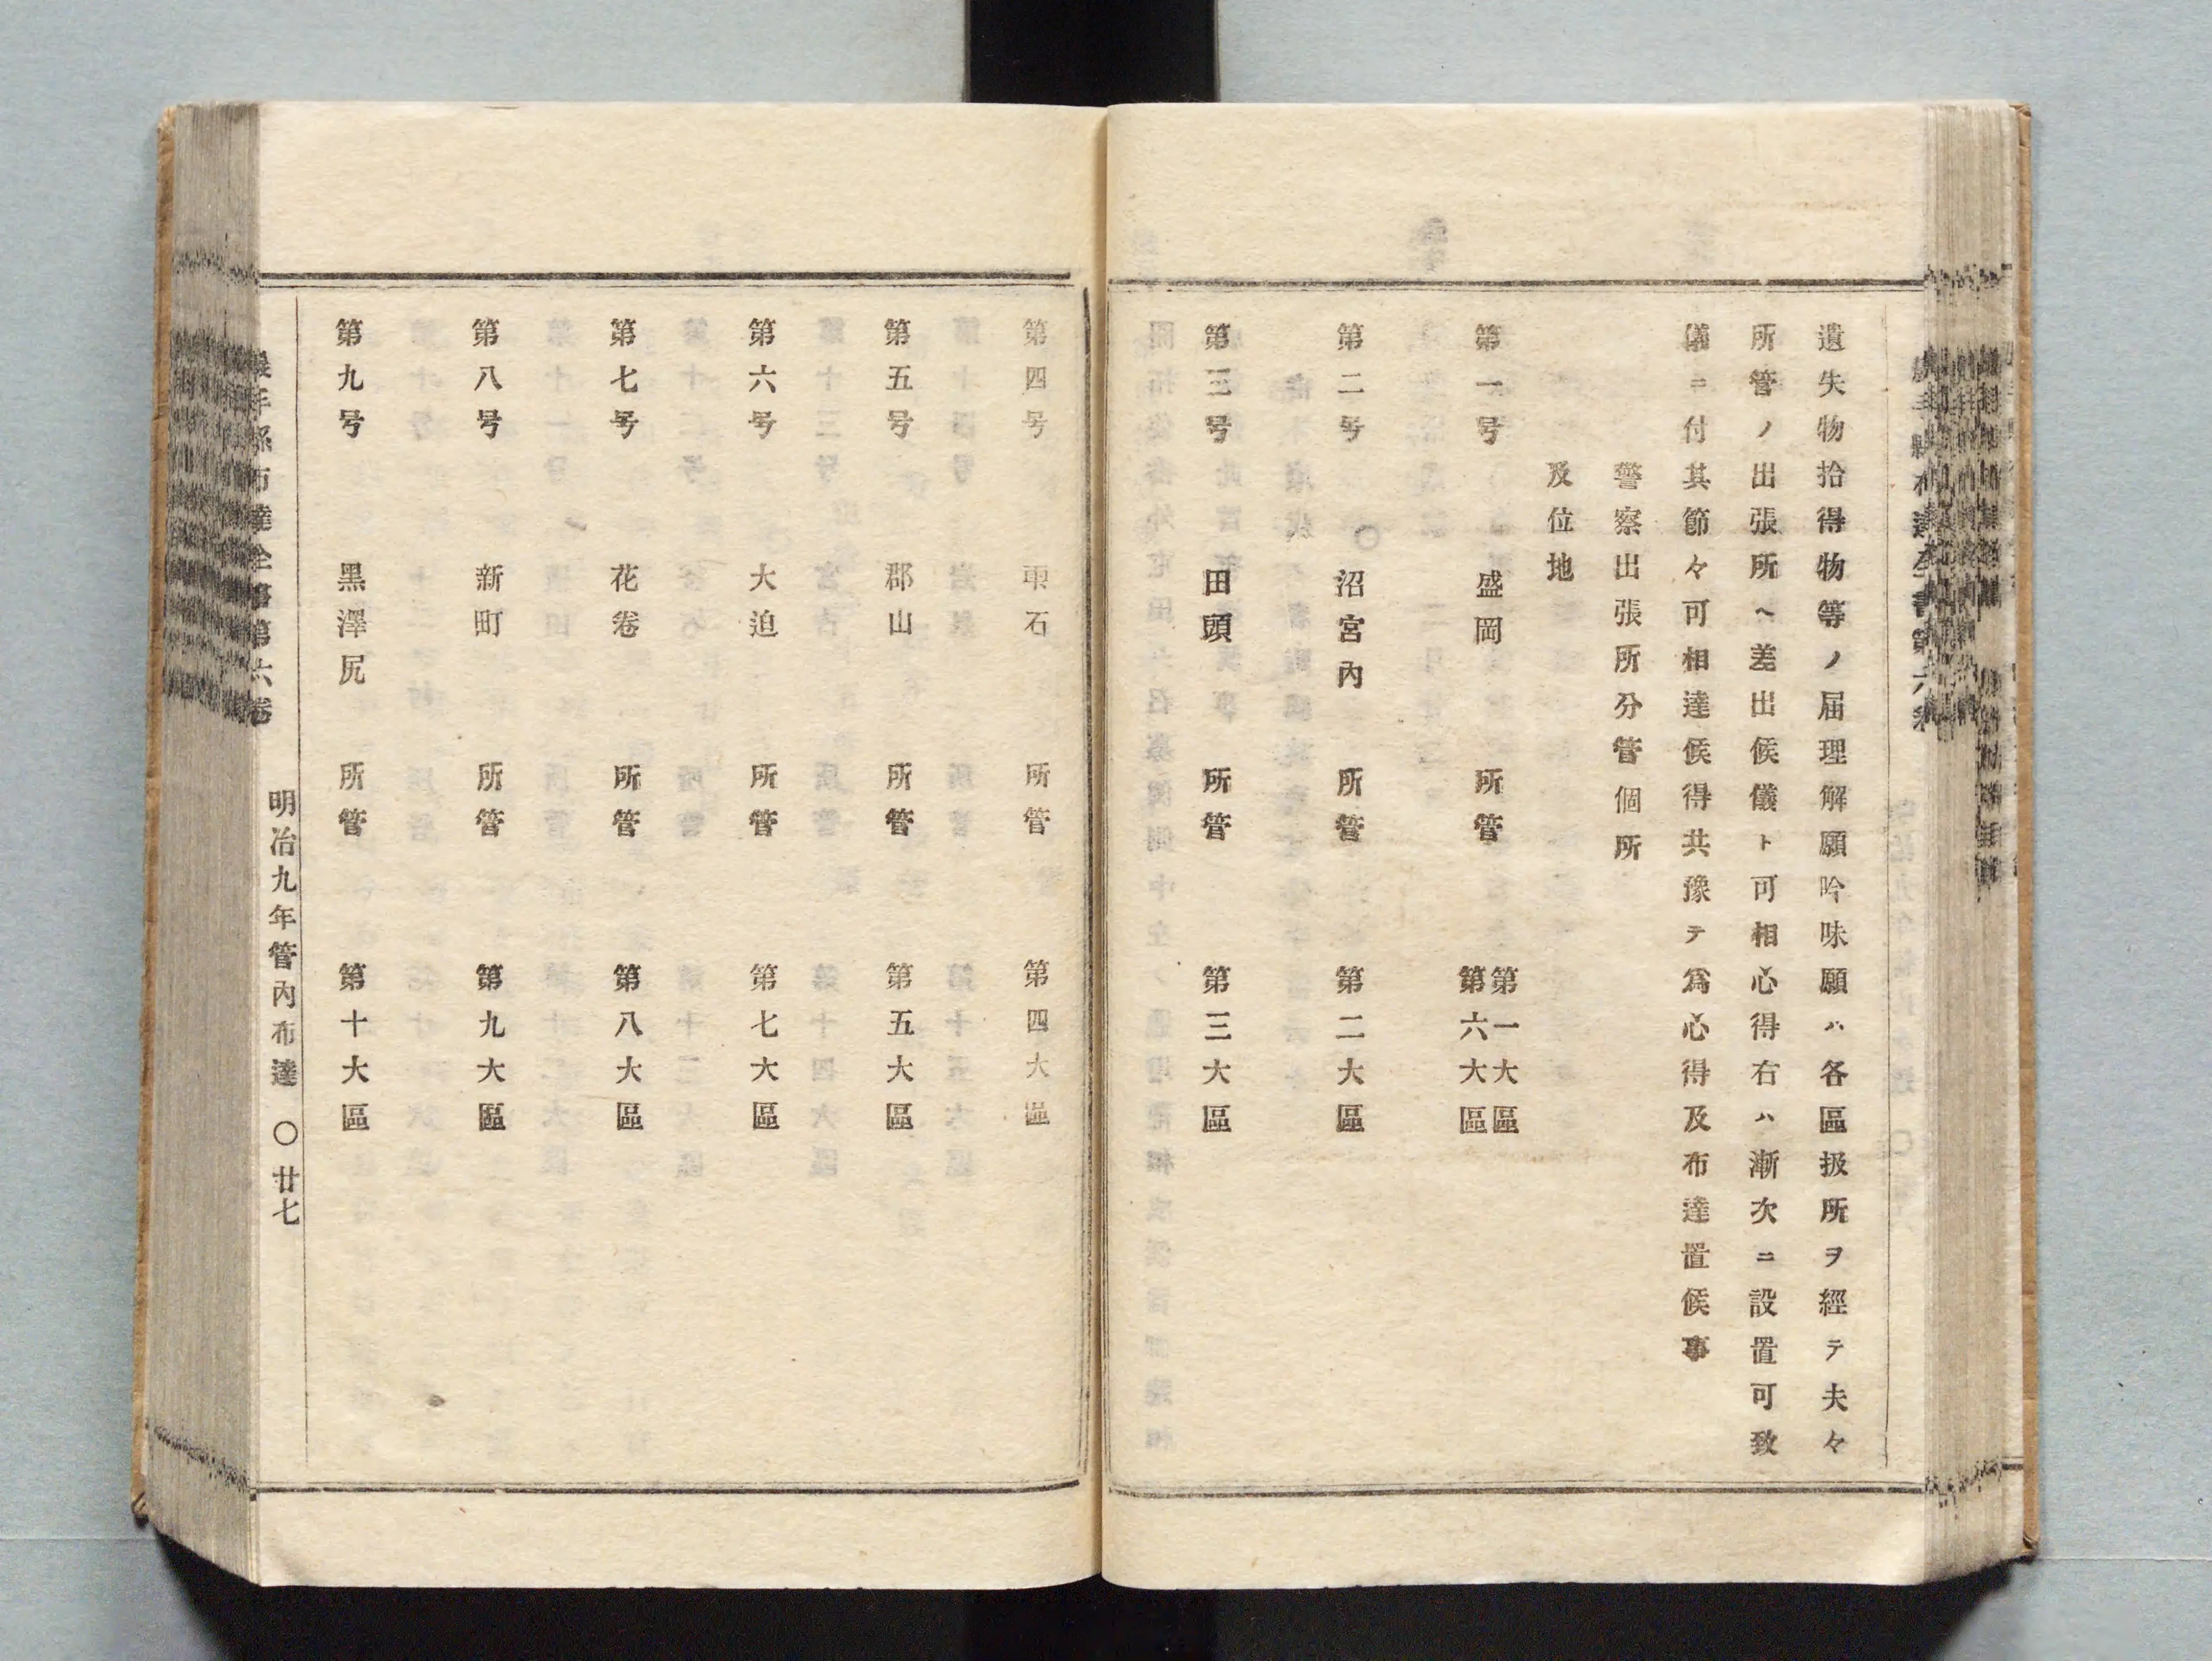 遺失物拾得物等ノ届理解願吟味願ハ各區扱所ヲ經テ夫々
所管ノ出張所ヘ差出候儀ト可相心得右ハ漸次ニ設置可致
儀ニ付其節々可相達候得共豫テ爲心得及布達置候事
警察出張所分管個所
及位地
第一号 盛岡 所管 第一大區
第六大區
第二号 沼宮內 所管 第二大區
第三号 田頭 所管 第三大區
第四号 雫石 所管 第四大區
第五号 郡山 所管 第五大區
第六号 大迫 所管 第七大區
第七号 花卷 所管 第八大區
第八号 新町 所管 第九大區
第九号 黑澤尻 所管 第十大區
縣布達全書第六卷
明治九年管內布達 〇 廿七